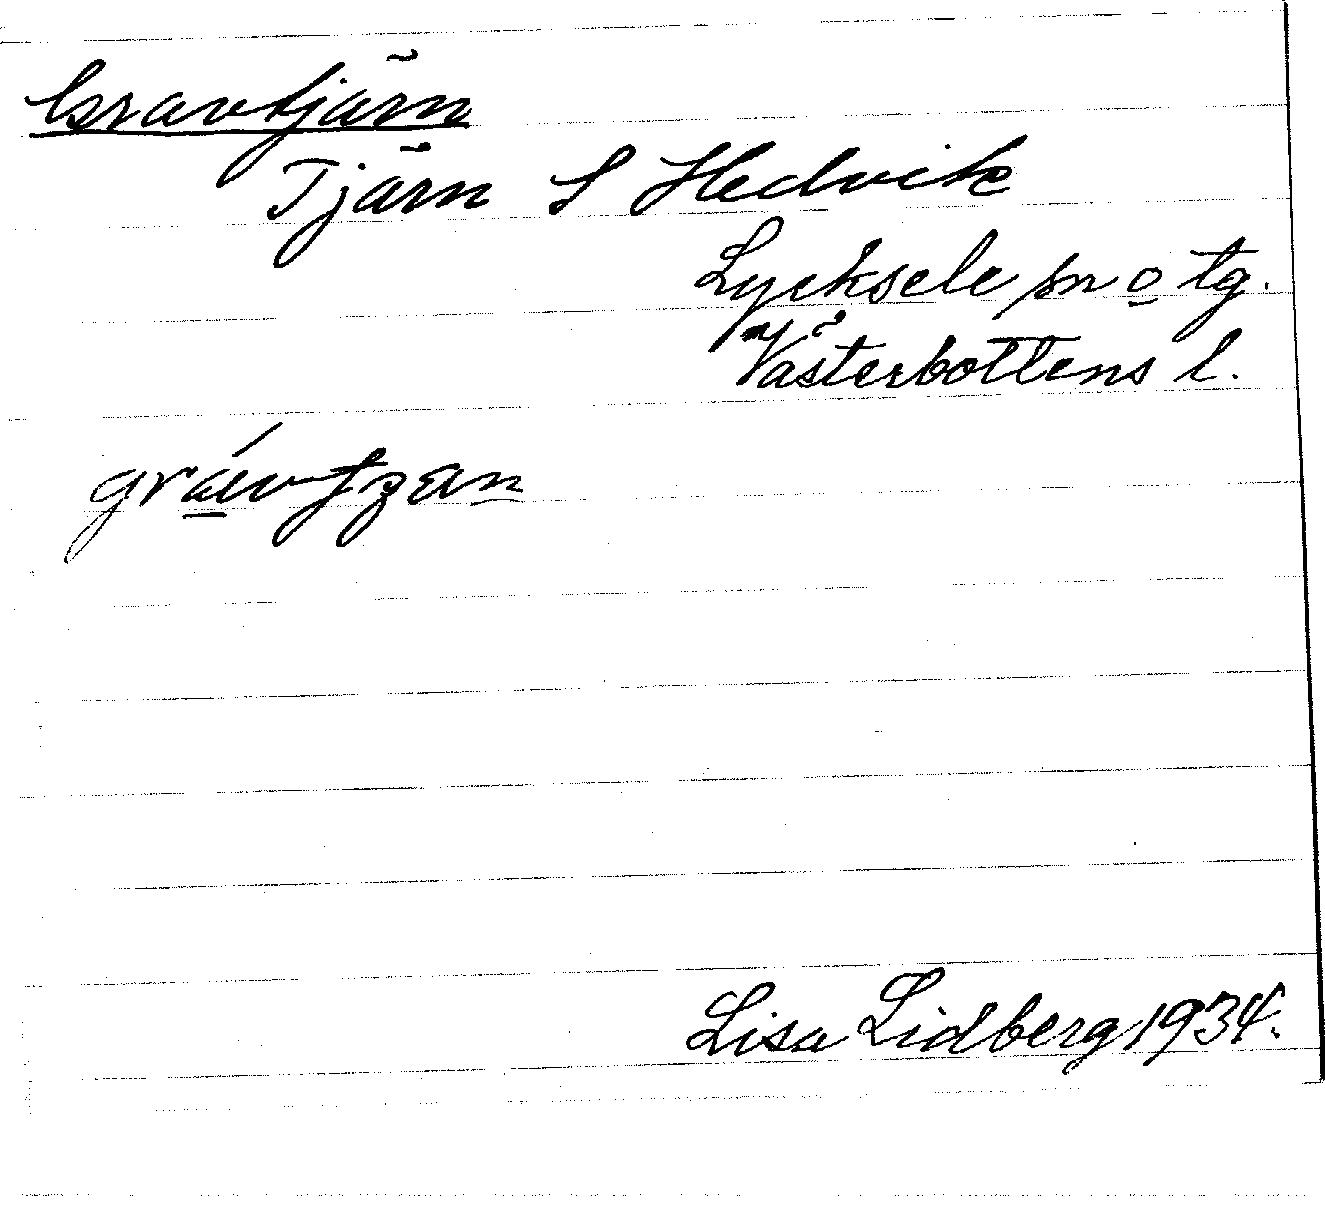 Gravtjärn
Tjärn S Hedvik
Lycksele sn o tg.
Västerbottens l.
Lisa Lidberg 1934.